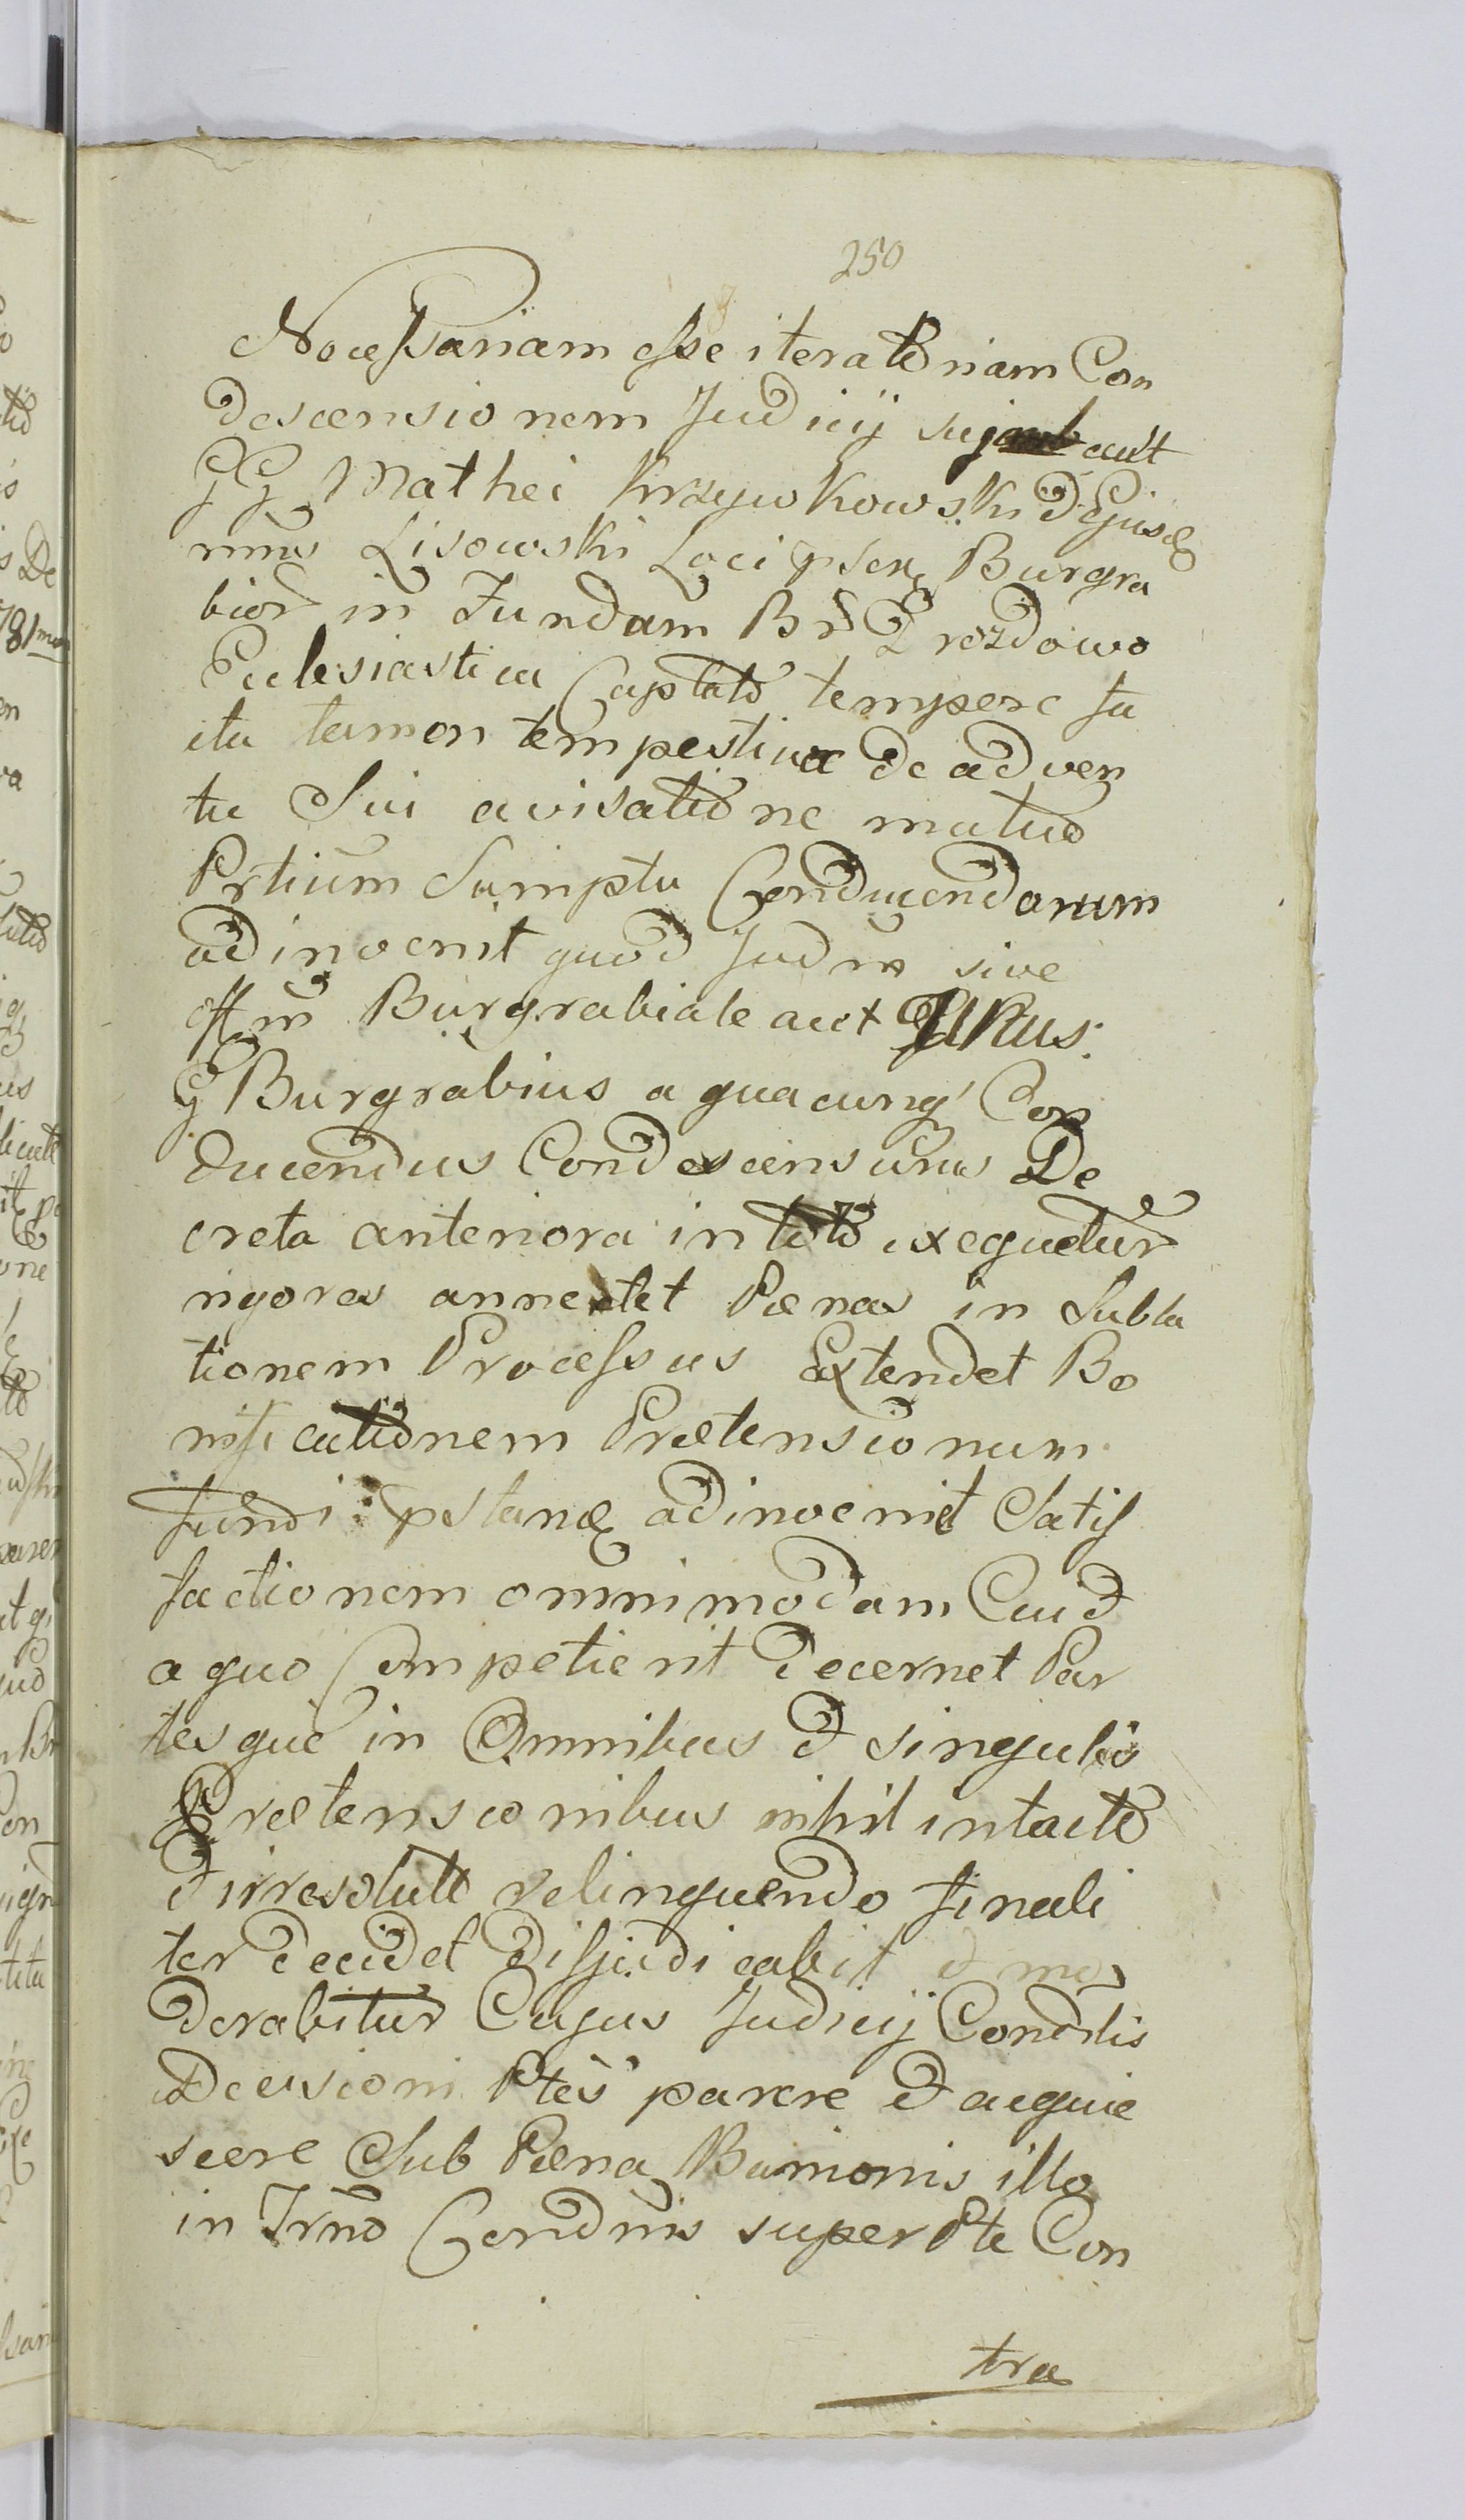 250
Necessariam esse iteratoriam Con
descensionem Judicij sui aut
GG Mathei Krzywkowski & Ejusd
mus Lisowski Loci psens Burgra
bior in Fundum Br Drozdowo
Eclesiastica Captato tempore fa
cta tamen tempestiva de adven
tu Sui avisatione mutuo
Prtium Sumptu Conducendorum
adinvenit quod Judm sive
Offm Burgrabiale aut
G Burgrabius a quacunq Con
ducendus Condescensurus De
creta anteriora in toto exequetur
rigores annectet Pænas in Subla
tionem Processus Extendet Bo
nificationem Prætensionum
fundi: pstand adinveniet Satis
factionem omnimodam Cuid
a quo Competierit decernet Par
tesque in Omnibus & singulis
Prætensionibus nihil intacto
& irresoluto relinquendo finali
ter decidet disjudicabit & mo
derabitur Cujus Judicij Conddlis
Decisioni Ptes parere & acquie
scere Sub Pæna Bannionis illo
in Trmo Condnis super Pte Con
tra